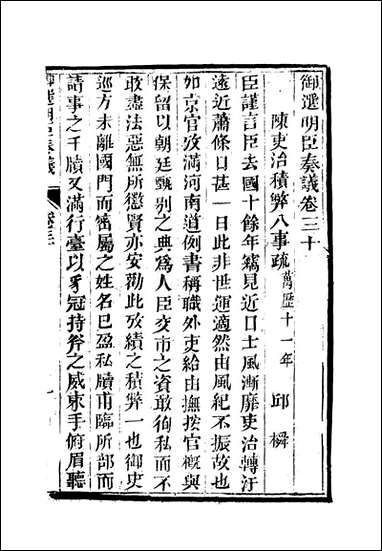 御選明臣奏議卷三十
陳吏治積弊八事疏 萬歷十一年 邱橓
臣謹言臣去國十餘年竊見近口士風漸靡吏治轉汙
遠近蕭條口甚一日此非世運適然由風紀不振故也
如京官攷滿河南道例書稱職外吏給由撫按官概與
保留以朝廷甄別之典為人臣交市之資敢徇私而不
敢盡法惡無所懲賢亦安勸此攷績之積弊一也御史
巡方未離國門而密屬之姓名已盈私牘甫臨所部而
請事之干牘又滿行臺以豸冠持斧之威束手俯眉聽
御選明臣奏議
卷三十
一